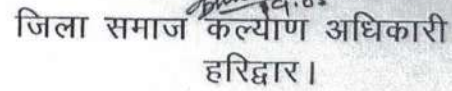 जिला समाज कल्याण अधिकारी
हरिद्वार।